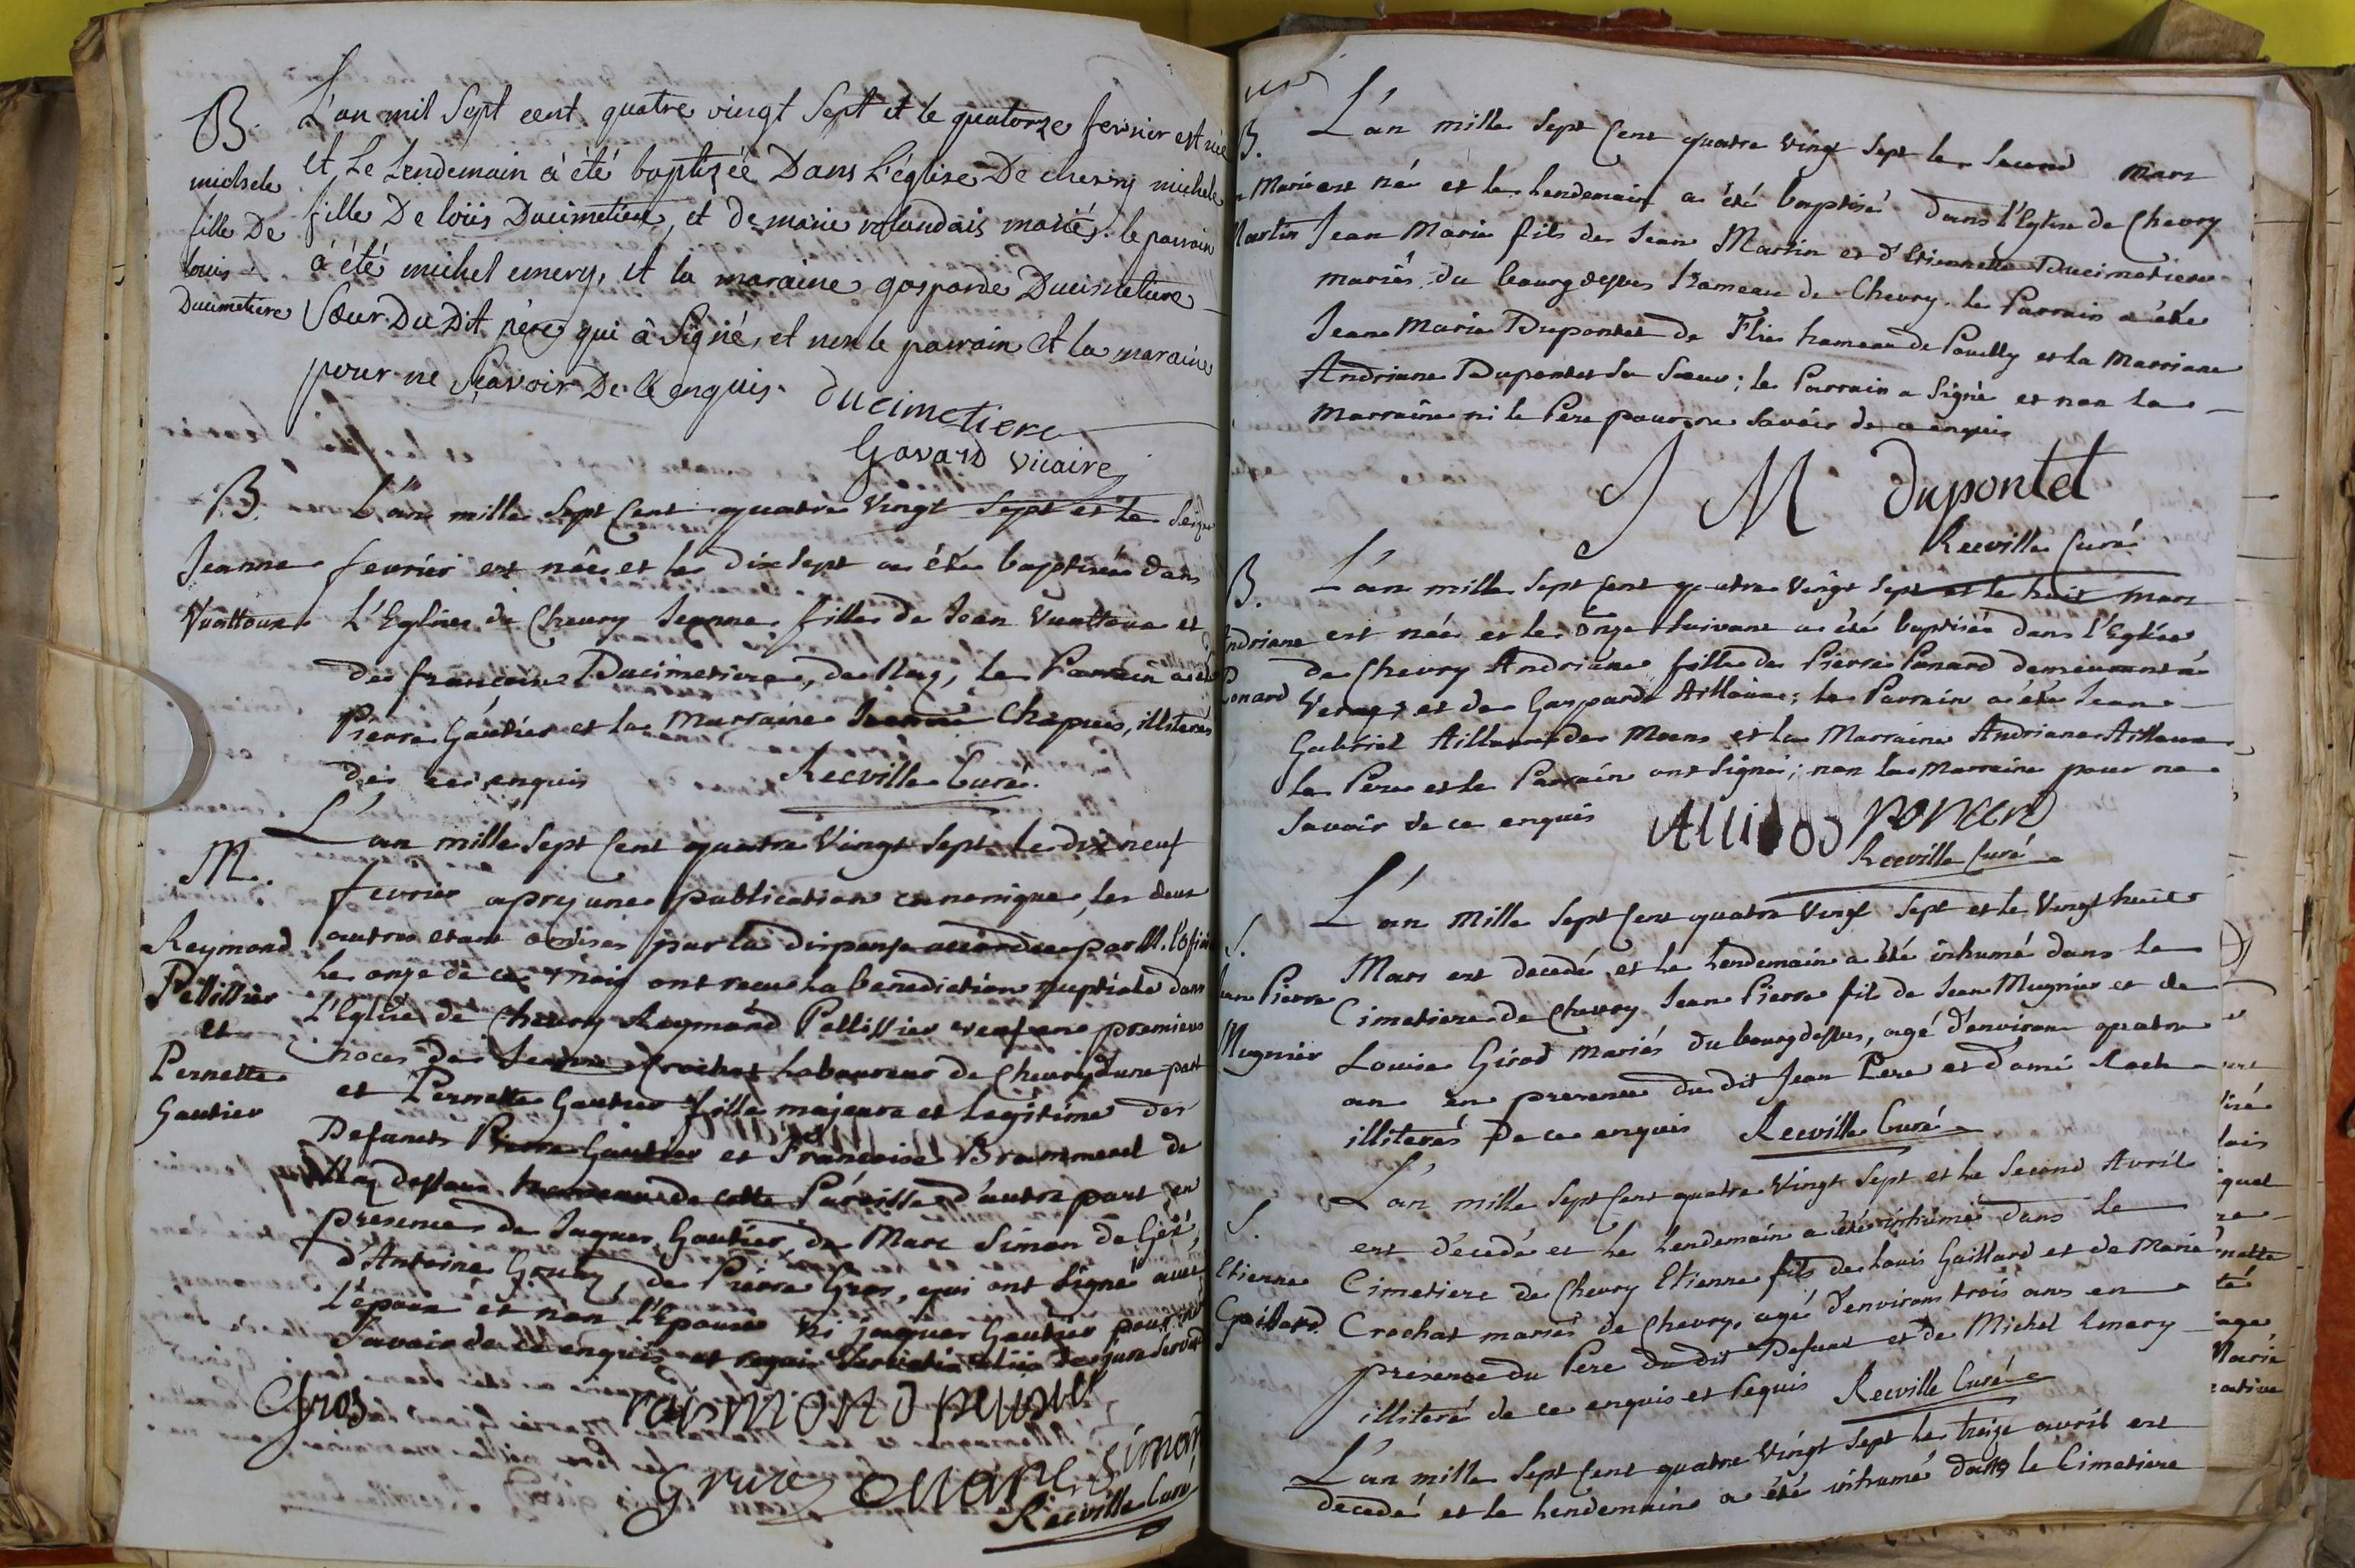 B.
michele
fille De
louis
Ducimetiere
L'an mil Sept cent quatre vingt Sept et le quatorze fevrier est née
et Le Lendemain à été baptizée Dans L'église De chevry michele
fille De loüis Ducimetiere, et de marie valandais mariés. le parrain
à été michel emery, et la maraine gasparde Ducimetiere
Sœur Du Dit père qui à Signé, et non le parrain et la maraine
pour ne Sçavoir De ce enquis.
ducimetiere
Gavard vicaire
B.
Jeanne
Vuattoux
L'an mille Sept Cent quatre Vingt Sept et le Seize
fevrier est née et le dix Sept a été baptisée dans
L'Eglise de Chevry Jeanne fille de Jean Vuattoux et
de françoise Ducimetiere, de Naz, le Parrain a été
Pierre Gautier et la Marraine Jeanne Chapuis, illiterés
de ce enquis
Recville Curé
M.
Reymond
Pellissier
et
Pernette
Gautier
L'an mille Sept Cent quatre Vingt Sept le dix neuf
fevrier apres une publication canonique, les deux
autres etant omises par la dispense accordée par M. l'ofici
le onze de ce mois ont recu la benediction nuptiale dans
l'Eglise de Chevry Reymond Pellissier veuf en premieres
noces de Jeanne Crochat laboureur de Chevry d'une part
et Pernette Gautier fille majeure et legitime des
Defunts Pierre Gautier et Françoise Brammerel de
Naz dessous hameau de cette Paroisse d'autre part en
presence de Jaques Gautier de Marc Simon de Gex,
d'Antoine Gruaz, de Pierre Gros, qui ont Signé avec
l'epoux et non l'Epouse ni jaques Gautier pour ne
Savoir de ce enquis
Gros
raismond pelisier
Gruaz
marc Simon
Recville Curé
B.
n Marie
Martin
L'an mille Sept Cent quatre Vingt Sept le Second Mars
est né et le lendemain a été baptisé dans l'Eglise de Chevry
Jean Marie fils de Jean Martin et d'Etiennette Ducimetiere
mariés du bourg dessus hameau de Chevry. le Parrain a été
Jean Marie Dupontet de Flies hameau de Pouilly et la Marraine
Andriane Dupontet sa Sœur; le Parrain a Signé et non la
Marraine ni le Pere pour ne Savoir de ce enquis
J M dupontet
Recville Curé
B.
Andriane
Ponard
L'an mille Sept Cent quatre Vingt Sept et le huit mars
est née et le Onze Suivant a été baptisée dans l'Eglise
de Chevry Andriane fille de Pierre Ponard demeurant à
Veraz, et de Gasparde Aillaux; le Parrain a été Jean
Gabriel Aillaux de Moens et la Marraine Andriane Aillaux
le Pere et le Parrain ont Signé; non la Marraine pour ne
Savoir de ce enquis
ponard
Recville Curé
S.
Jean Pierre
Mugnier
L'an Mille Sept Cent quatre Vingt Sept et le Vingt huit
Mars est decedé et le lendemain a été inhumé dans le
Cimetiere de Chevry Jean Pierre fils de Jean Mugnier et de
Louise Girod mariés du bourg dessus, agé d'environ quatre
an en presence du dit Jean Pere et d'amé Roch
illiterés De ce enquis
Recville Curé
S.
Etienne
Gaillard
L'an mille Sept Cent quatre Vingt Sept et le Second Avril
est décedé et le lendemain a été inhumé dans le
Cimetiere de Chevry Etienne fils de Louis Gaillard et de Marie
Crochat mariés de Chevry, agé d'environ trois ans en
presence du Pere du dit Defunt et de Michel Emery
illiteré de ce enquis et Requis
Recville Curé
L'an mille Sept Cent quatre Vingt Sept le treize avril est
decedé et le lendemain a été inhumé dans le Cimetiere